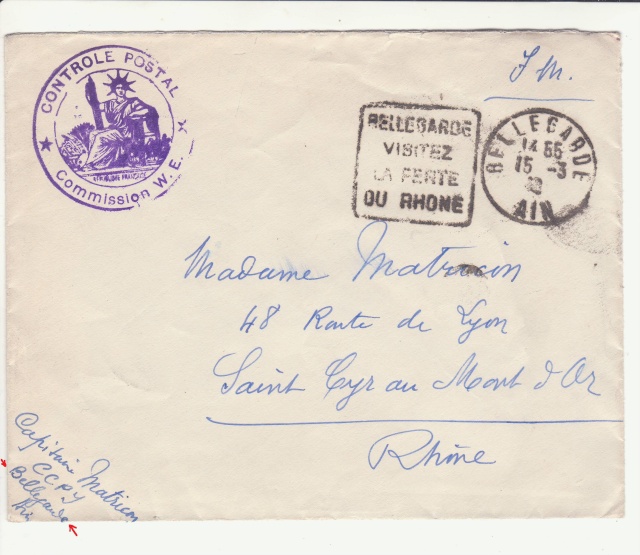 CONTROLE POSTAL
Commission W.E.
F.M.
BELLEGARDE
VISITEZ
LA PERTE
DU RHONE
BELLEGARDE
15 -3
AIN
Madame Matricon
48 Route de Lyon
Saint Cyr au Mont d'Or
Rhône
Capitaine Matricon
Bellegarde
Ain